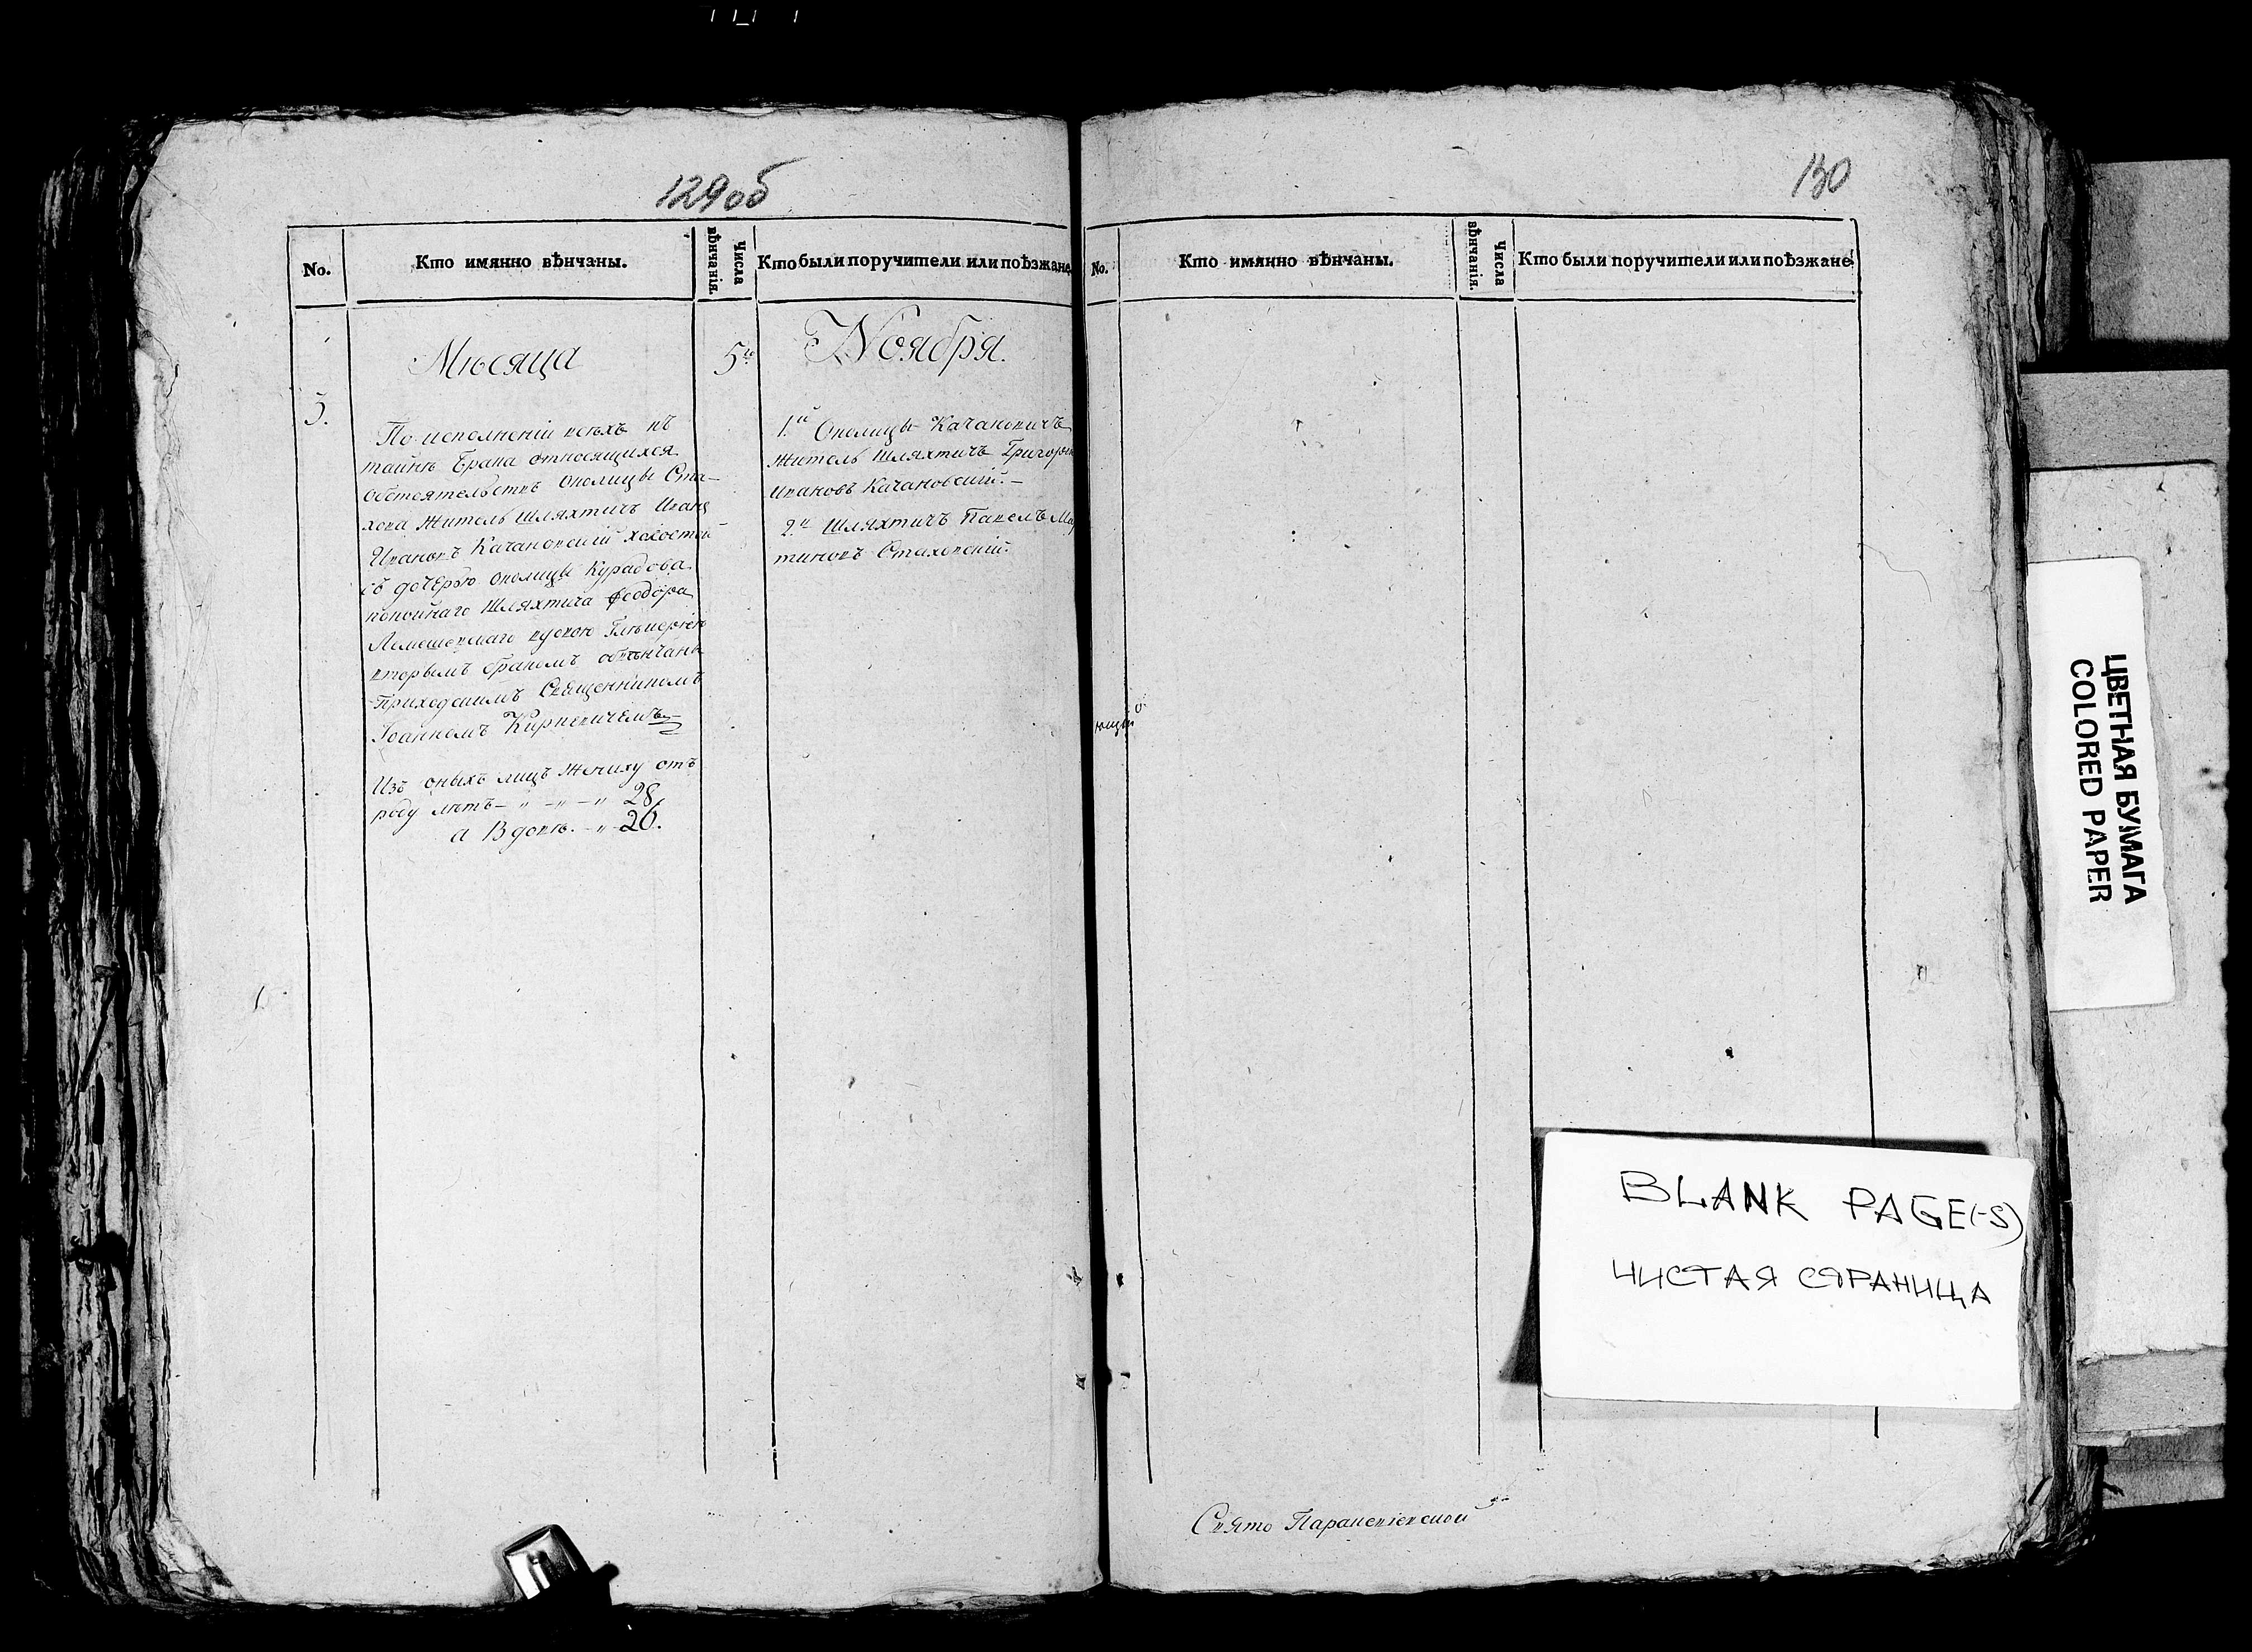 129об
No.
Кто имянно вѣнчаны.
Числа вѣнчанія.
Кто были поручители или поѣзжане
Мѣсяца
5го
Ноября.
3.
По исполненіи всѣхъ къ
тайнѣ брака относящихся
обстоятельствъ околицы Ста-
хова житель шляхтичъ Иванъ
Ивановъ Качановскій холостой
съ дочерью околицы Курадова
покойнаго шляхтича Феодора
Лемешевскаго вдовою Гликеріею
вторымъ бракомъ обвѣнчанъ
Приходскимъ Священникомъ
Іоанномъ Киркевичемъ
Изъ оныхъ лицъ жениху отъ
роду лѣтъ – „ – „ – „ 28,
а Вдовѣ. – „ 26.
1.й Околицы Качановичъ
житель шляхтичъ Григорій
Ивановъ Качановскій. –
2.й Шляхтичъ Павелъ Мар
тиновъ Стаховскій.
130
No.
Кто имянно вѣнчаны.
Числа вѣнчанія.
Кто были поручители или поѣзжане
Свято Параскевіевской
BLANK PAGE(-S)
ЧИСТАЯ СТРАНИЦА
ЦВЕТНАЯ БУМАГА
COLORED PAPER